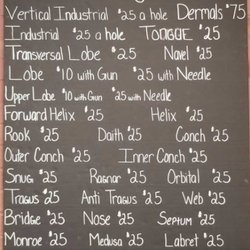 Vertical Industrial $25 a hole Dermals $75
Industrial $25 a hole TONGUE $25
Transversal Lobe $25 Navel $25
Lobe $10 with Gun $25 with Needle
Upper Lobe $10 with Gun $25 with Needle
Forward Helix $25 Helix $25
Rook $25 Daith $25 Conch $25
Outer Conch $25 Inner Conch $25
Snug $25 Ragnar $25 Orbital $25
Tragus $25 Anti Tragus $25 Web $25
Bridge $25 Nose $25 Septum $25
Monroe $25 Medusa $25 Labret $25